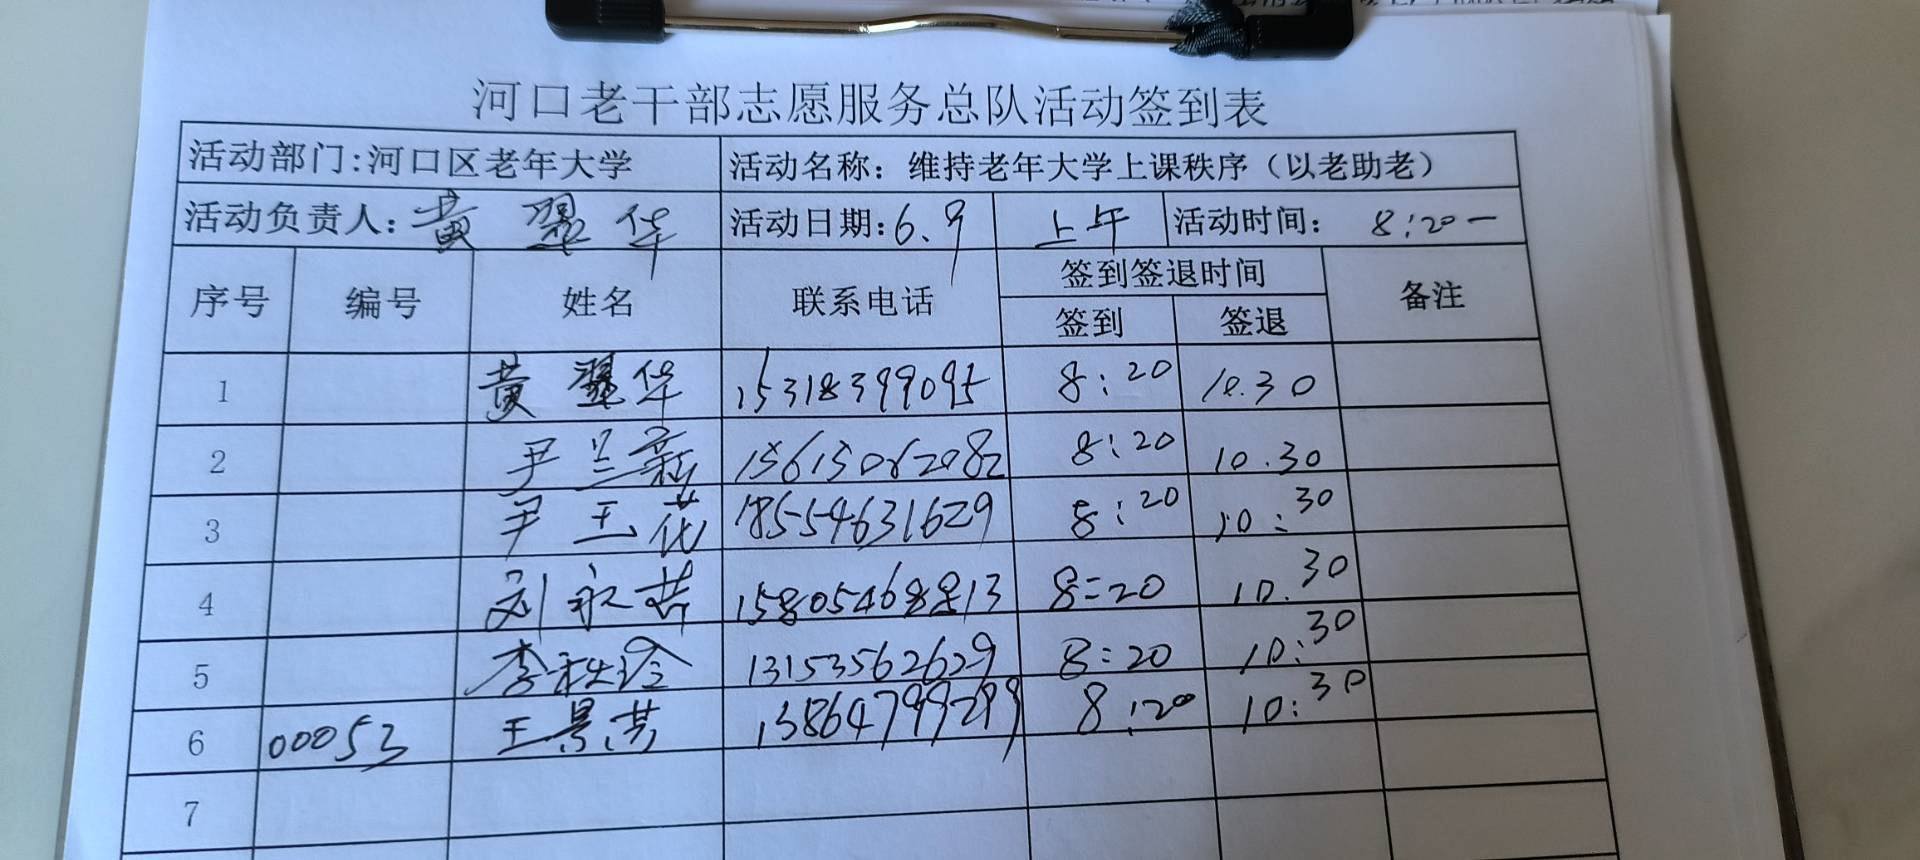 河口老干部志愿服务总队活动签到表
活动部门:河口区老年大学 活动名称：维持老年大学上课秩序（以老助老）
活动负责人:黄翠华 活动日期:6.9 上午 活动时间： 8:20一
序号 编号 姓名 联系电话 签到签退时间 备注
签到 签退
1 黄翠华 15318399095 8:20 10.30
2 尹兰新 15615062082 8:20 10.30
3 尹玉花 18554631629 8:20 10:30
4 刘永 15805468813 8:20 10.30
5 李秋玲 13153562629 8:20 10:30
6 00053 王景 13864799299 8:20 10:30
7